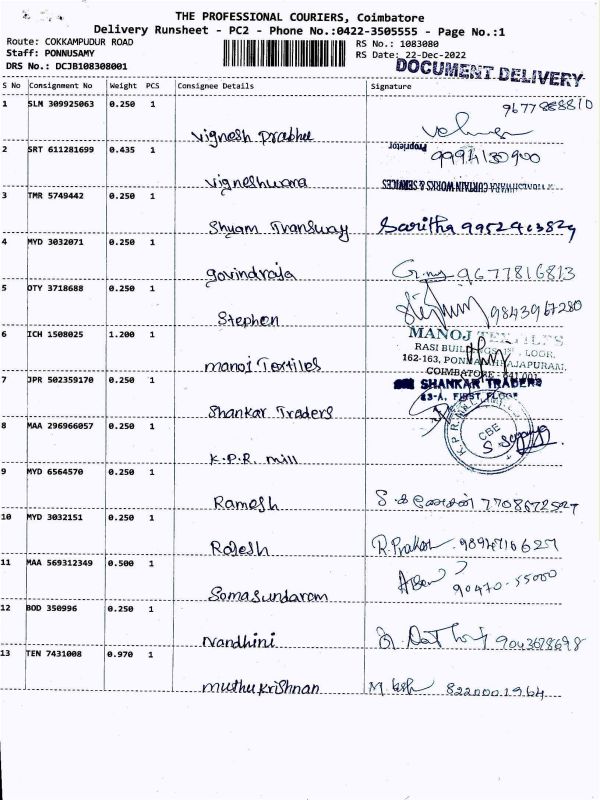 THE PROFESSIONAL COURIERS, Coimbatore
Delivery Runsheet - PC2 - Phone No.:0422-3505555 - Page No.:1
Route: COKKAMPUDUR ROAD
Staff: PONNUSAMY
DRS No.: DCJB108308001
RS No.: 1083080
RS Date: 22-Dec-2022
DOCUMENT DELIVERY
S No Consignment No Weight PCS Consignee Details Signature
1 SLM 309925063 0.250 1
Vignesh Prabhu
9677888810
2 SRT 611281699 0.435 1
Vigneshwara
Proprietor
9994130900
CURTAIN WORKS & SERVICES
3 TMR 5749442 0.250 1
Shyam Transway Saritha 9952903829
4 MYD 3032071 0.250 1
govindraja 9677816813
5 OTY 3718688 0.250 1
Stephen 9843967280
6 ICH 1508025 1.200 1
manoj Textiles
MANOJ TEXTILES
RASI BUILDINGS
162-163,
COIMBATORE - 641 001
7 JPR 502359170 0.250 1
Shankar Traders
SHANKAR TRADERS
83-A, FIRST FLOOR
8 MAA 296966057 0.250 1
K.P.R. mill
K.P.R. MILL LIMITED
CBE
9 MYD 6564570 0.250 1
Ramesh
10 MYD 3032151 0.250 1
Rajesh R. Prakash
11 MAA 569312349 0.500 1
Somasundaram 90470-55000
12 BOD 350996 0.250 1
Nandhini 9043678698
13 TEN 7431008 0.970 1
muthu krishnan 8220001964